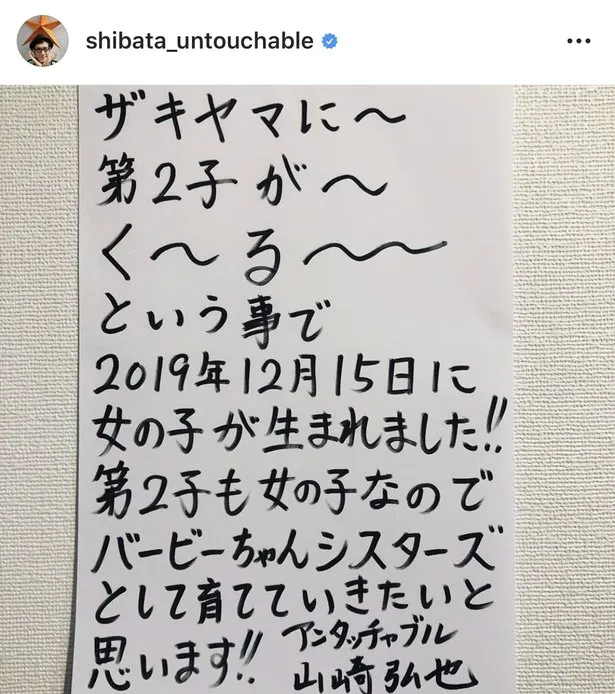 shibata_untouchable
ザキヤマに〜
第2子が〜
く〜る〜〜
という事で
2019年12月15日に
女の子が生まれました!!
第2子も女の子なので
バービーちゃんシスターズ
として育てていきたいと
思います!! アンタッチャブル
山崎弘也